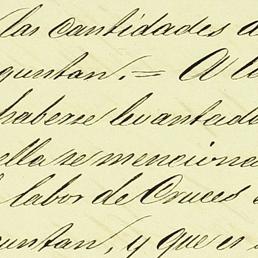 las cantidades d
guntan.= A l
haberse levantad
ella se menciona
labor de Cruces
guntan, y que es